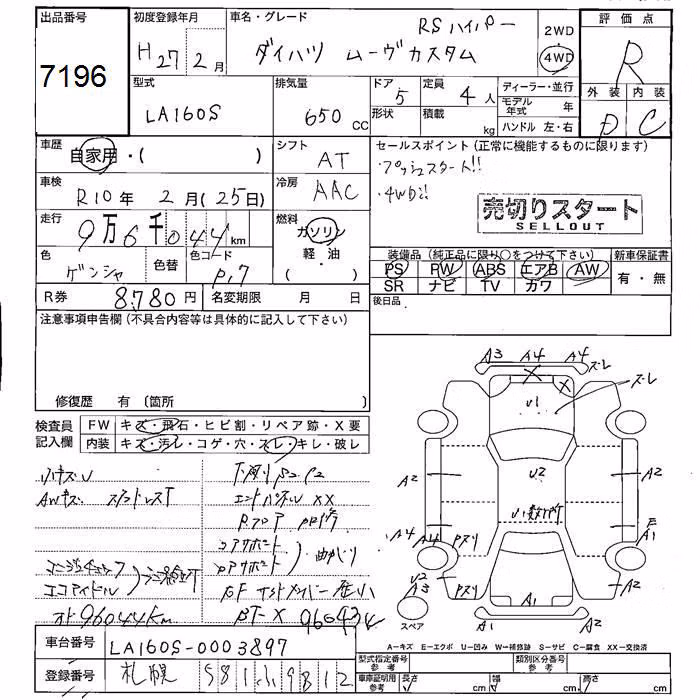 出品番号
7196
初度登録年月
H27年2月
車名・グレード
ダイハツ ムーヴカスタム
RSハイパー
2WD
4WD
評価点
R
外装 内装
D C
型式
LA160S
排気量
650 cc
ドア
5
形状
定員
4人
積載
kg
ディーラー・並行
モデル年式 年
ハンドル 左・右
車歴
自家用・( )
シフト
AT
セールスポイント(正常に機能するものに限ります)
プッシュスタート!!
4WD!!
売切りスタート
SELLOUT
車検
R10年 2月(25日)
冷房
AAC
走行
9万6千044km
燃料
ガソリン
軽・油
( )
色
ゲンシャ
色替
色コード
装備品(純正品に限り○をつけて下さい)
PS PW ABS エアB AW
SR ナビ TV カワ
新車保証書
有・無
後日品
R券
8,780円
名変期限 月 日
注意事項申告欄(不具合内容等は具体的に記入して下さい)
修復歴 有 〔箇所
検査員記入欄
FW キズ・飛石・ヒビ割・リペア跡・X要
内装 キズ・汚レ・コゲ・穴・スレ・キレ・破レ
AWキズ スタッドレスT
エンドパネル XX
コアサポート
エコアイドル
96044km
A3 A4 A4 ズレ
X X ズレ
U1
A2 U2 A2
A4 A4
E
A1
U2
A3
スペア
A1 A2 A1
車台番号
LA160S-0003897
登録番号
札幌 581 ふ 9812
A─キズ E─エクボ U─凹み W─補修跡 S─サビ C─腐食 XX─交換済
型式指定番号 参考
類別区分番号 参考
車庫証明用参考
長さ cm 幅 cm 高さ cm